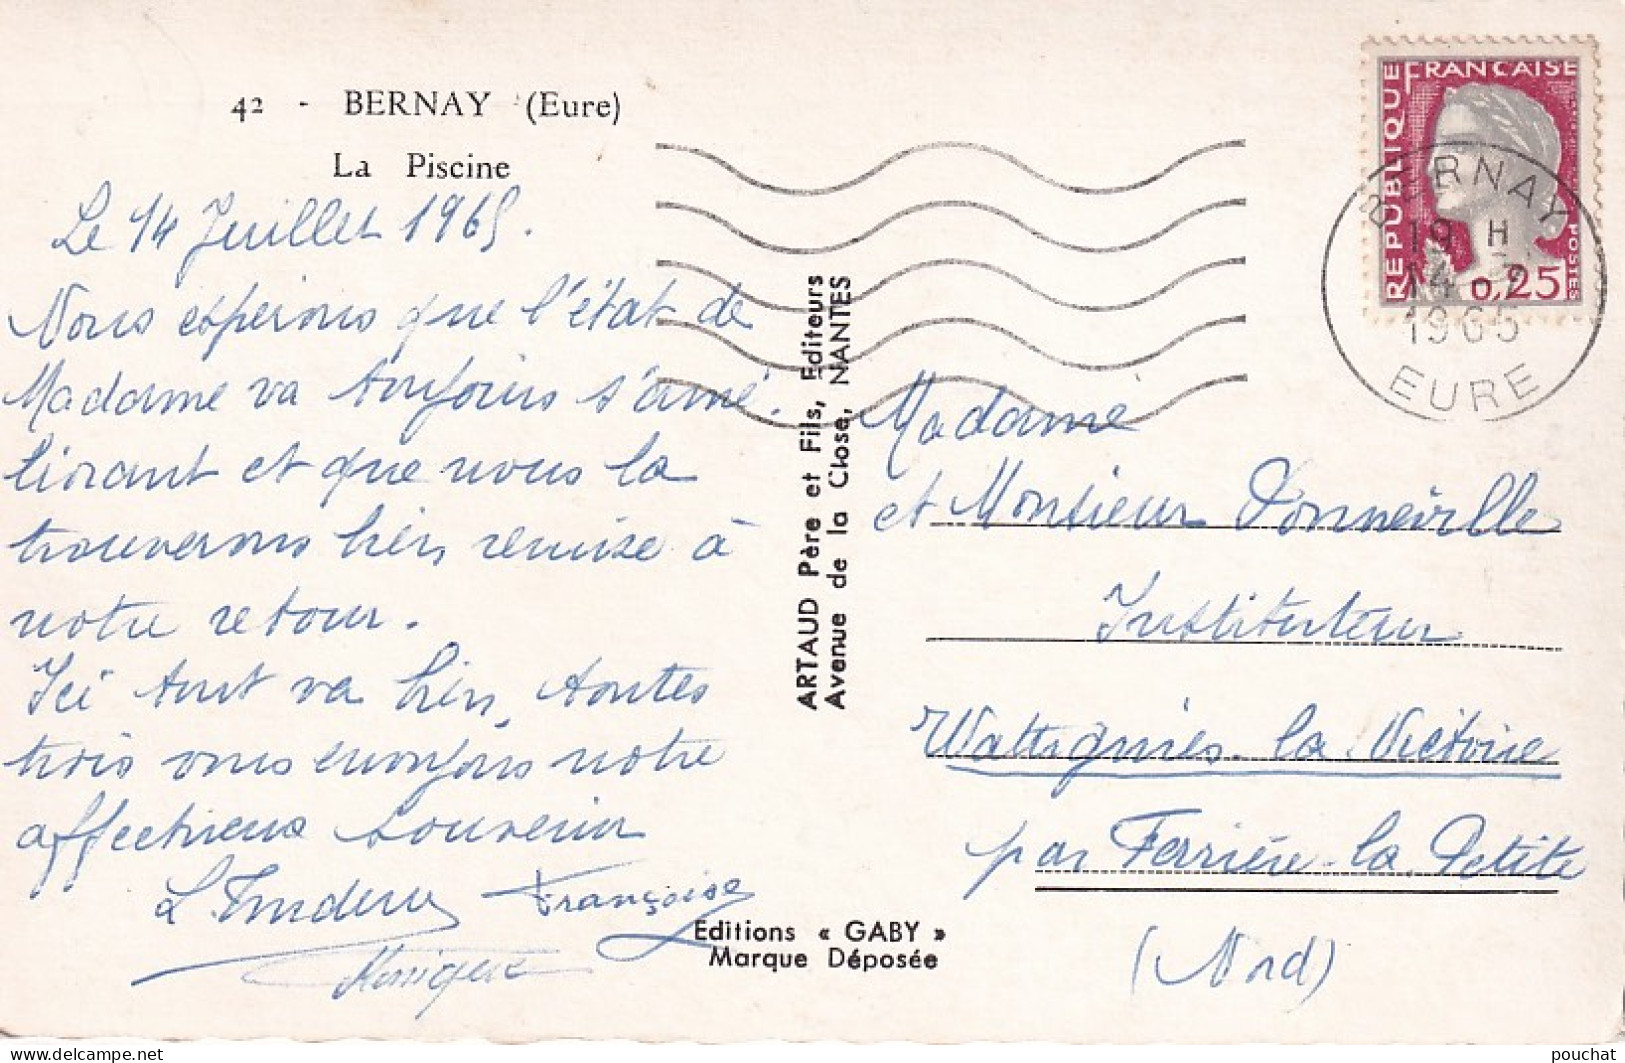 42 - BERNAY (Eure)
La Piscine
Le 14 Juillet 1965.
Nous espérons que l'état de
Madame va toujours s'amé-
liorant et que nous la
trouverons bien remise à
notre retour.
Ici tout va bien, toutes
trois vous envoyons notre
affectueux souvenir
Françoise
Monique
ARTAUD Père et Fils, Editeurs
Avenue de la Close, NANTES
Editions « GABY »
Marque Déposée
REPUBLIQUE FRANÇAISE
POSTES
0,25
BERNAY
19 H
14 -7
1965
EURE
Madame
et Monsieur Donneville
Instituteur
Wattignies-la-Victoire
par Ferrière-la-Petite
(Nord)
www.delcampe.net
pouchat